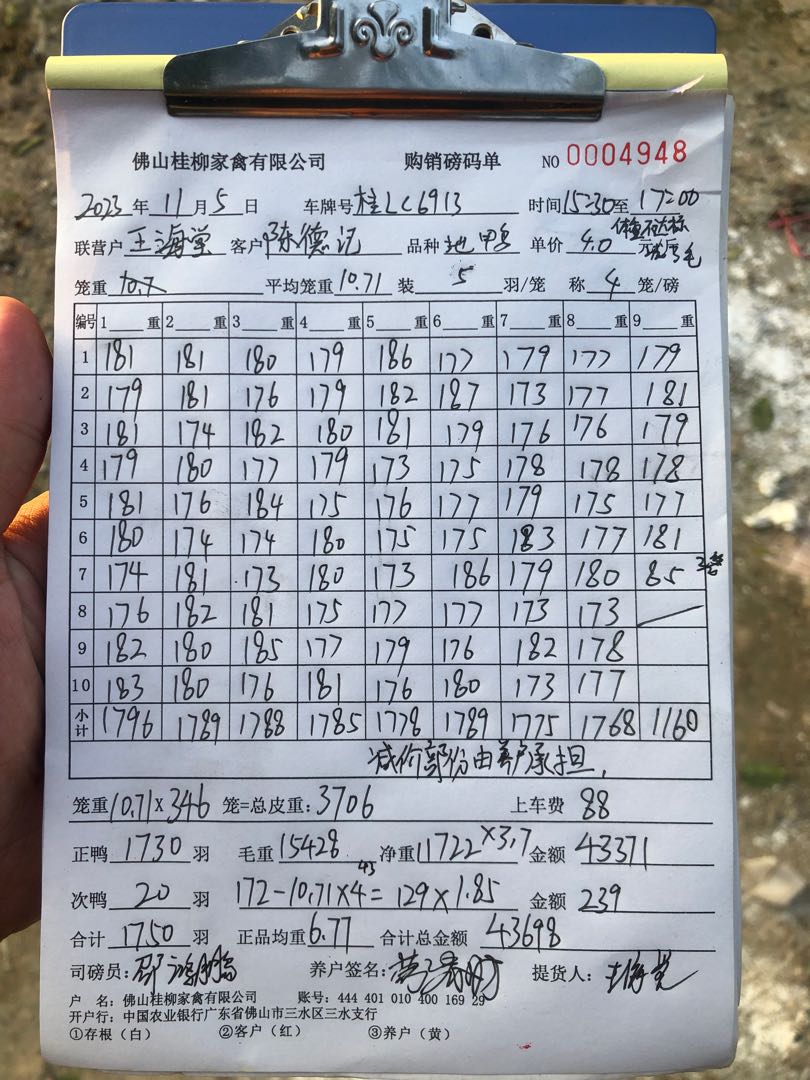 佛山桂柳家禽有限公司 购销磅码单 NO 0004948
2023 年 11 月 5 日 车牌号 桂LC6913 时间 15:30 至 17:00
联营户 王海堂 客户 陈德记 品种 地鸭 单价 4.0 元/斤 体重不达标
笼重 10.7 平均笼重 10.71 装 5 羽/笼 称 4 笼/磅
编号 1 重 2 重 3 重 4 重 5 重 6 重 7 重 8 重 9 重
1 181 181 180 179 186 177 179 177 179
2 179 181 176 179 182 187 173 177 181
3 181 174 182 180 181 179 176 176 179
4 179 180 177 179 173 175 178 178 178
5 181 176 184 175 176 177 179 175 177
6 180 174 174 180 175 175 183 177 181
7 174 181 173 180 173 186 179 180 85
8 176 182 181 175 177 177 173 173
9 182 180 185 177 179 176 182 178
10 183 180 176 181 176 180 173 177
小计 1796 1789 1788 1785 1778 1789 1775 1768 1160
减价部份由养户承担,
笼重 10.71 X 346 笼=总皮重: 3706 上车费 88
正鸭 1730 羽 毛重 15428 净重 11722 ×3.7 金额 43371
43
次鸭 20 羽 172-10.71×4= 129×1.85 金额 239
合计 1750 羽 正品均重 6.77 合计总金额 43698
司磅员: 养户签名: 提货人: 王海堂
户 名: 佛山桂柳家禽有限公司 账号: 444 401 010 400 169 29
开户行: 中国农业银行广东省佛山市三水区三水支行
①存根(白) ②客户(红) ③养户(黄)